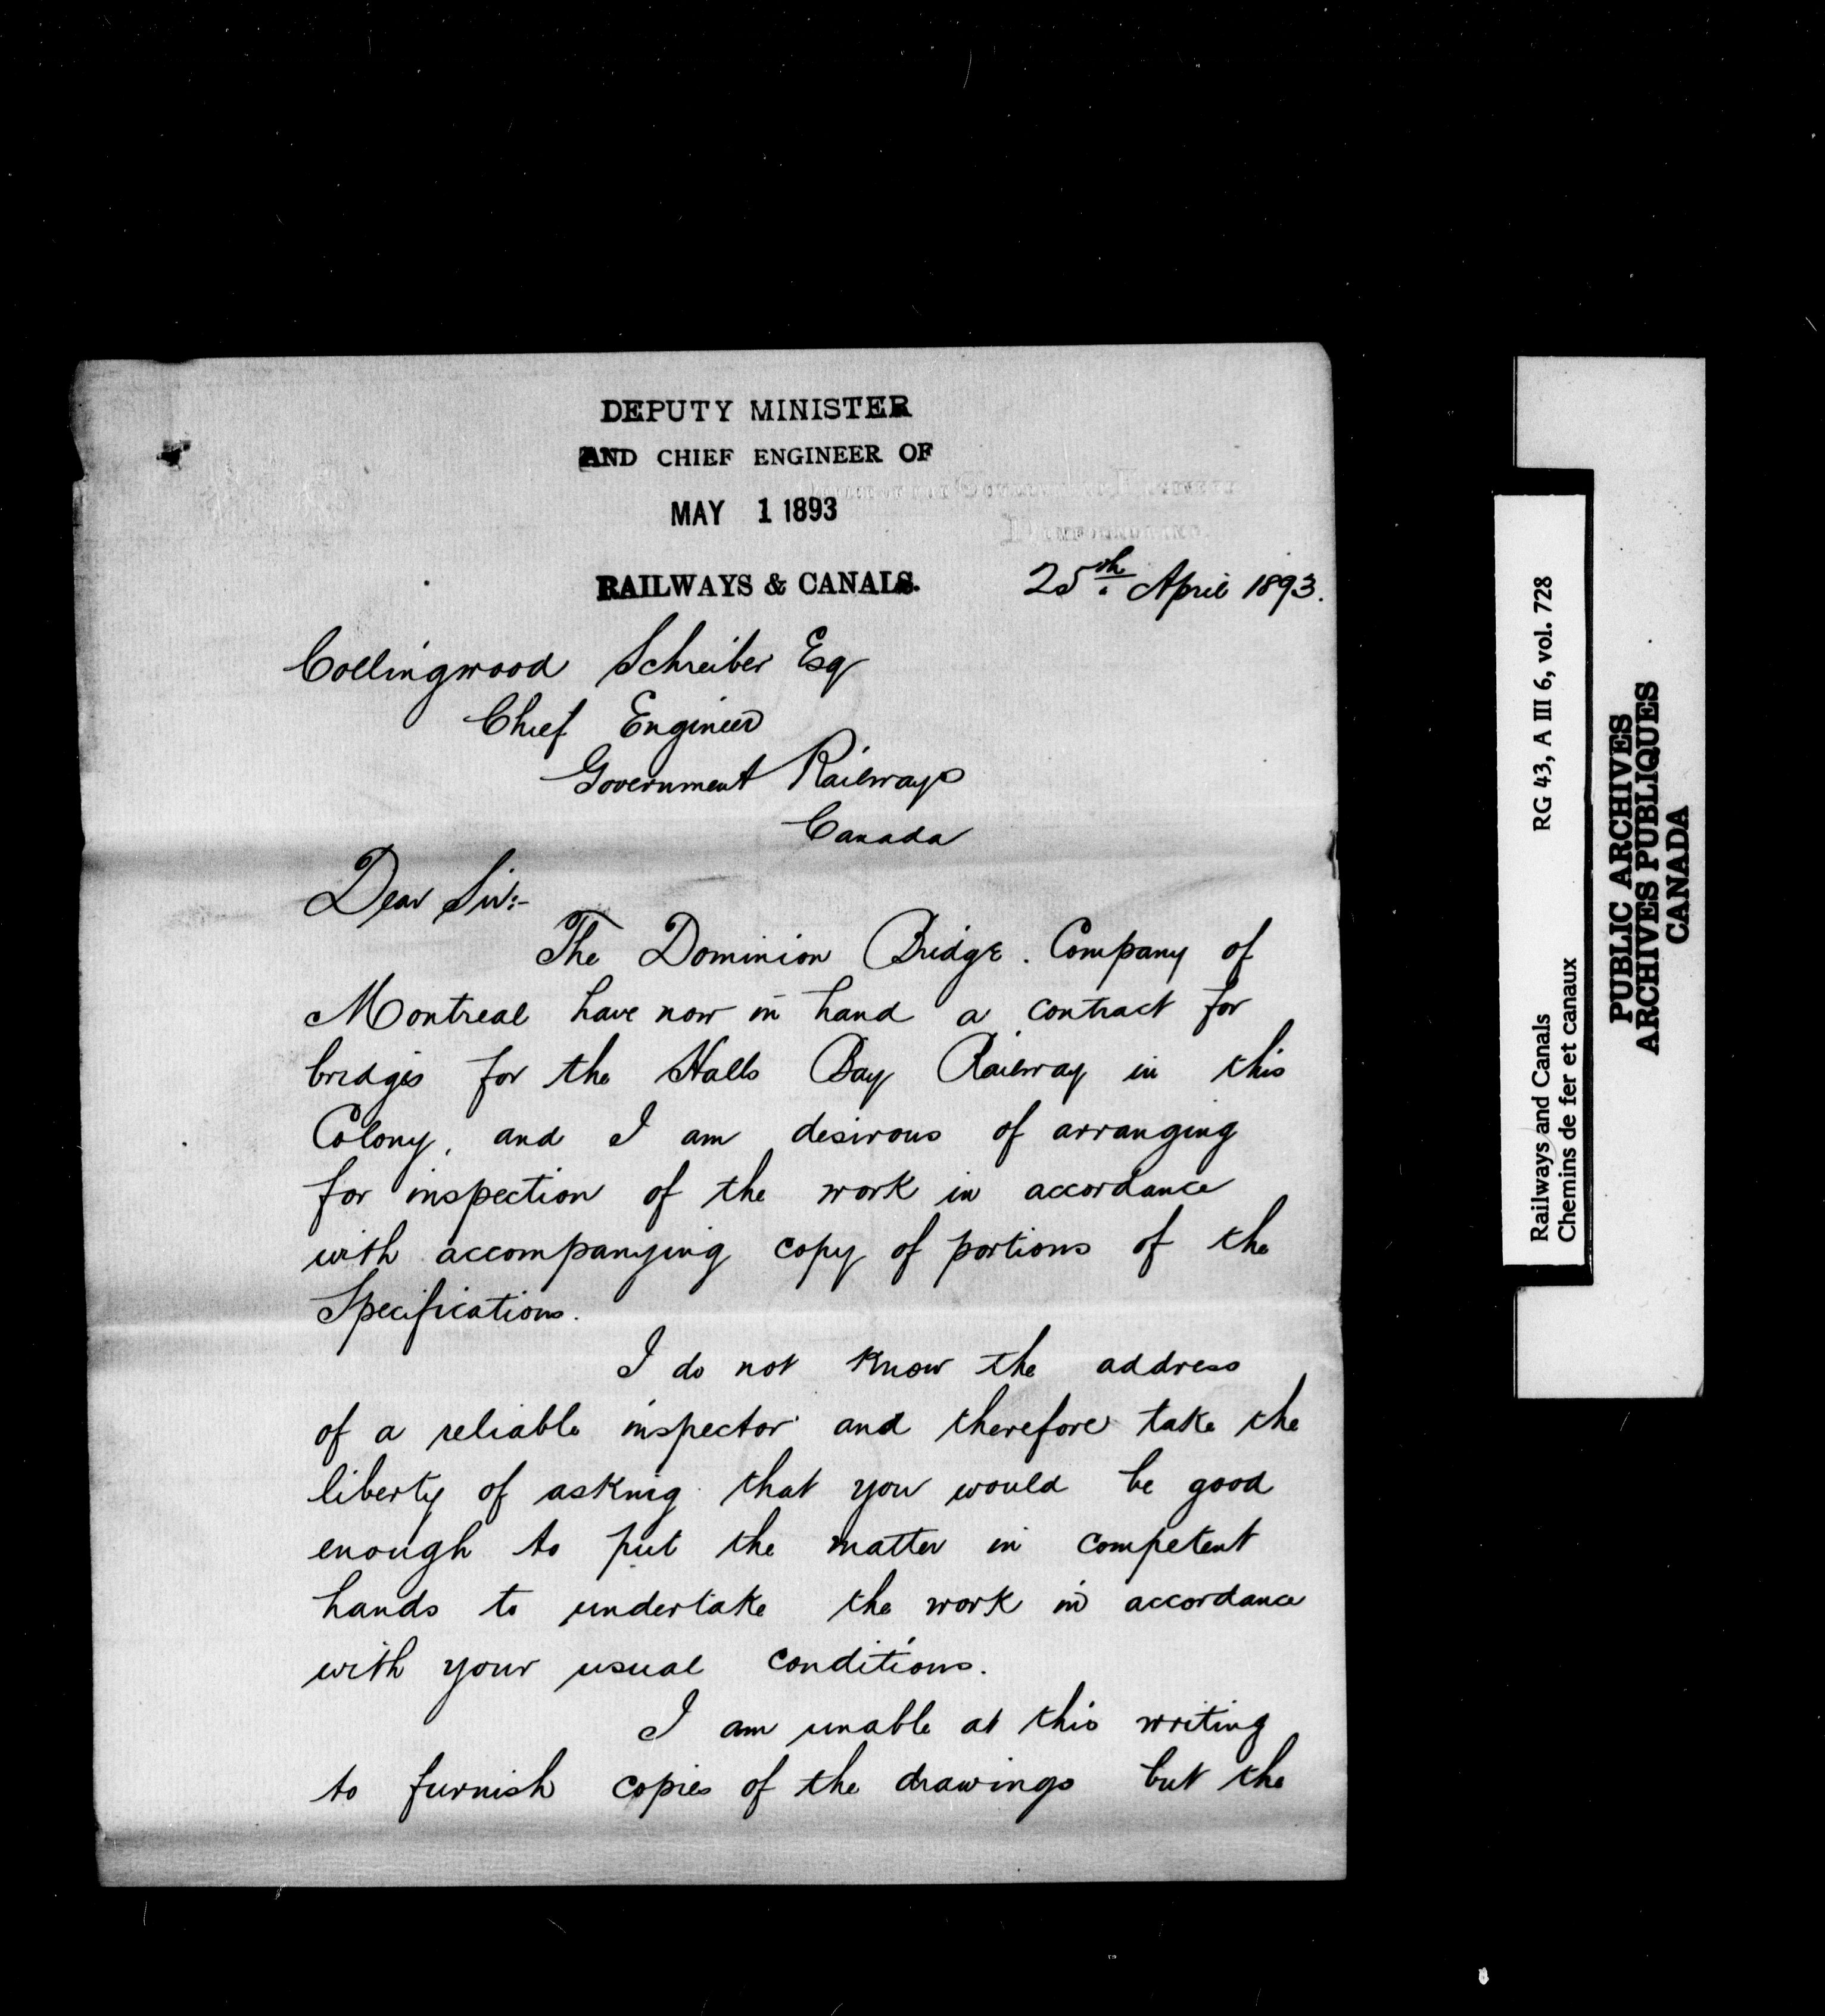 DEPUTY MINISTER
AND CHIEF ENGINEER OF
MAY 1 1893
RAILWAYS & CANALS.
25th. April 1893.
Collingwood Schreiber Esq
Chief Engineer
Government Railways
Canada
Dear Sir:-
The Dominion Bridge. Company of
Montreal have now in hand a contract for
bridges for the Halls Bay Railway in this
Colony, and I am desirous of arranging
for inspection of the work in accordance
with accompanying copy of portions of the
Specifications.
I do not know the address
of a reliable inspector and therefore take the
liberty of asking that you would be good
enough to put the matter in competent
hands to undertake the work in accordance
with your usual conditions.
I am unable at this writing
to furnish copies of the drawings but the
Railways and Canals RG 43, A III 6, vol. 728
Chemins de fer et canaux
PUBLIC ARCHIVES
ARCHIVES PUBLIQUES
CANADA